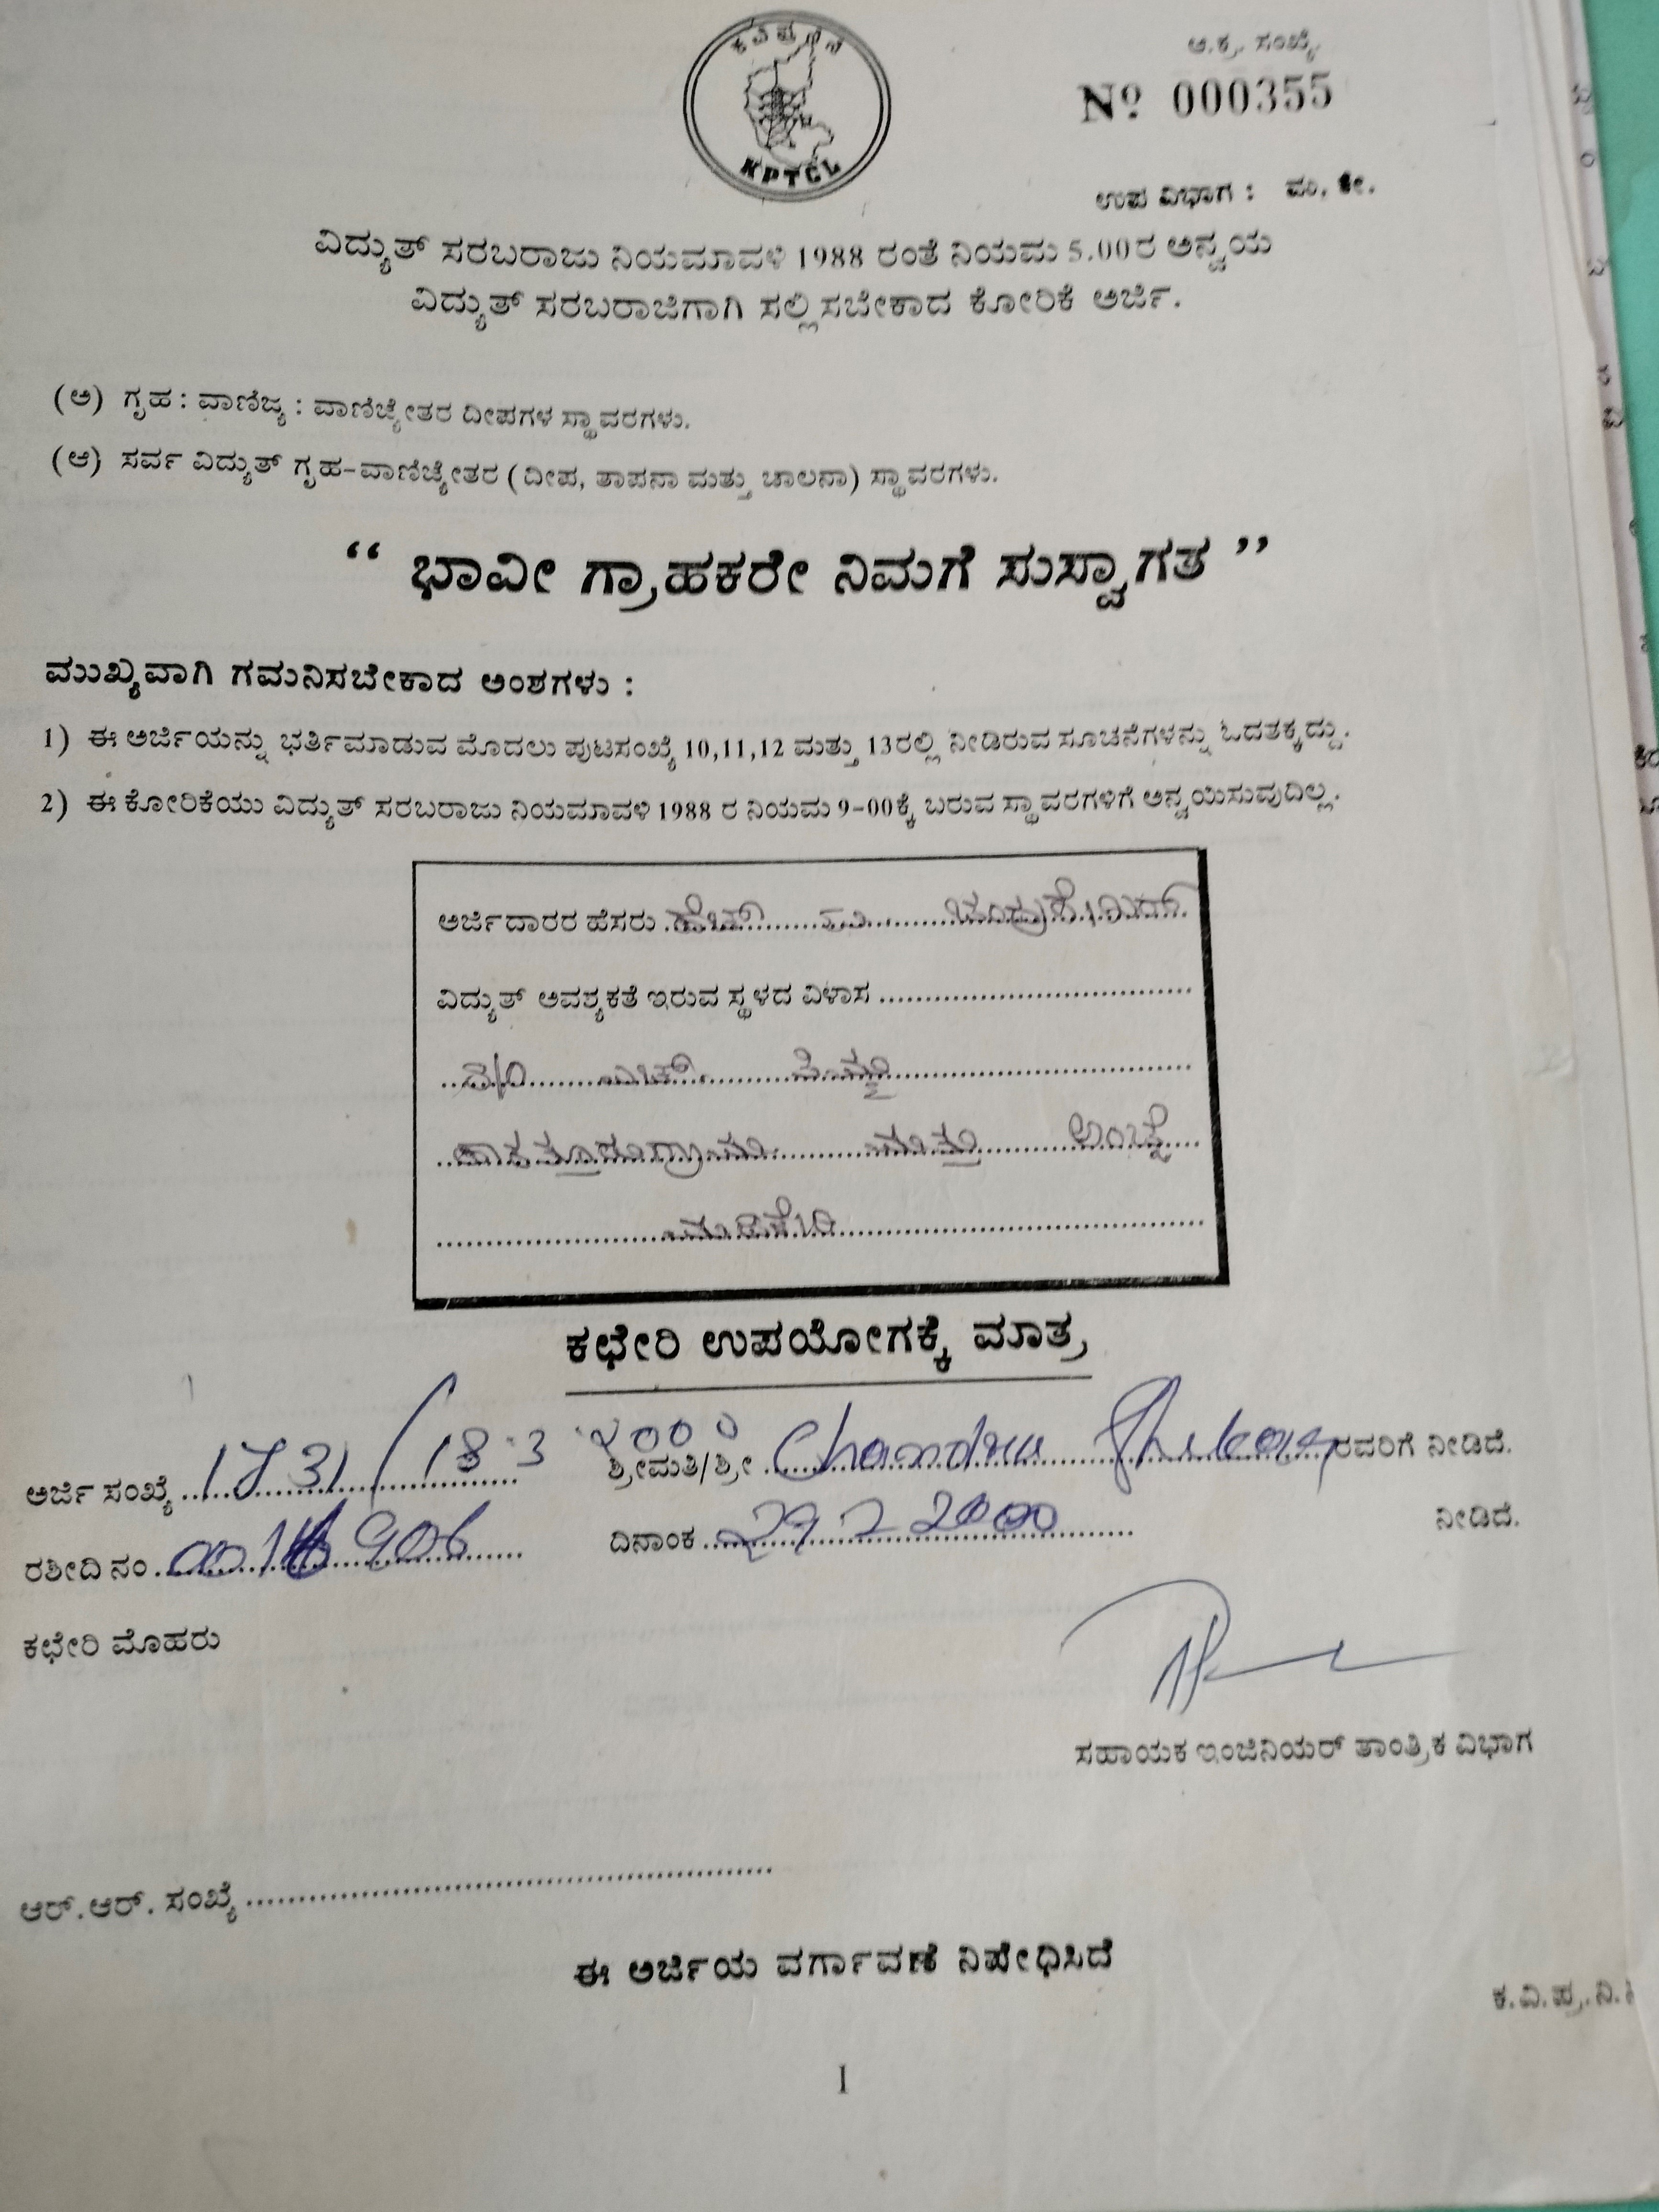 ಕವಿಪ್ರನಿನಿ
KPTCL
ಅ.ಕ್ರ. ಸಂಖ್ಯೆ
Nº 000355
ಉಪ ವಿಭಾಗ :
ವಿದ್ಯುತ್ ಸರಬರಾಜು ನಿಯಮಾವಳಿ 1988 ರಂತೆ ನಿಯಮ 5.00ರ ಅನ್ವಯ
ವಿದ್ಯುತ್ ಸರಬರಾಜಿಗಾಗಿ ಸಲ್ಲಿಸಬೇಕಾದ ಕೋರಿಕೆ ಅರ್ಜಿ.
(ಅ) ಗೃಹ : ವಾಣಿಜ್ಯ : ವಾಣಿಜ್ಯೇತರ ದೀಪಗಳ ಸ್ಥಾವರಗಳು.
(ಆ) ಸರ್ವ ವಿದ್ಯುತ್ ಗೃಹ-ವಾಣಿಜ್ಯೇತರ (ದೀಪ, ತಾಪನಾ ಮತ್ತು ಚಾಲನಾ) ಸ್ಥಾವರಗಳು.
“ ಭಾವೀ ಗ್ರಾಹಕರೇ ನಿಮಗೆ ಸುಸ್ವಾಗತ ”
ಮುಖ್ಯವಾಗಿ ಗಮನಿಸಬೇಕಾದ ಅಂಶಗಳು :
1) ಈ ಅರ್ಜಿಯನ್ನು ಭರ್ತಿಮಾಡುವ ಮೊದಲು ಪುಟಸಂಖ್ಯೆ 10,11,12 ಮತ್ತು 13ರಲ್ಲಿ ನೀಡಿರುವ ಸೂಚನೆಗಳನ್ನು ಓದತಕ್ಕದ್ದು.
2) ಈ ಕೋರಿಕೆಯು ವಿದ್ಯುತ್ ಸರಬರಾಜು ನಿಯಮಾವಳಿ 1988 ರ ನಿಯಮ 9-00ಕ್ಕೆ ಬರುವ ಸ್ಥಾವರಗಳಿಗೆ ಅನ್ವಯಿಸುವುದಿಲ್ಲ.
ಅರ್ಜಿದಾರರ ಹೆಸರು ಹೆಚ್ ಎಂ ಚಂದ್ರಶೇಖರ್
ವಿದ್ಯುತ್ ಅವಶ್ಯಕತೆ ಇರುವ ಸ್ಥಳದ ವಿಳಾಸ
ಮತ್ತು ಅಂಚೆ
ಮಡಿಕೇರಿ
ಕಛೇರಿ ಉಪಯೋಗಕ್ಕೆ ಮಾತ್ರ
ಅರ್ಜಿ ಸಂಖ್ಯೆ 1731/18.3 ಶ್ರೀಮತಿ/ಶ್ರೀ Chandra Shekar ರವರಿಗೆ ನೀಡಿದೆ.
ರಶೀದಿ ನಂ. ದಿನಾಂಕ 29 2 2000 ನೀಡಿದೆ.
ಕಛೇರಿ ಮೊಹರು
ಸಹಾಯಕ ಇಂಜಿನಿಯರ್ ತಾಂತ್ರಿಕ ವಿಭಾಗ
ಆರ್.ಆರ್. ಸಂಖ್ಯೆ
ಈ ಅರ್ಜಿಯ ವರ್ಗಾವಣೆ ನಿಷೇಧಿಸಿದೆ
ಕ.ವಿ.ಪ್ರ.ನಿ.
1